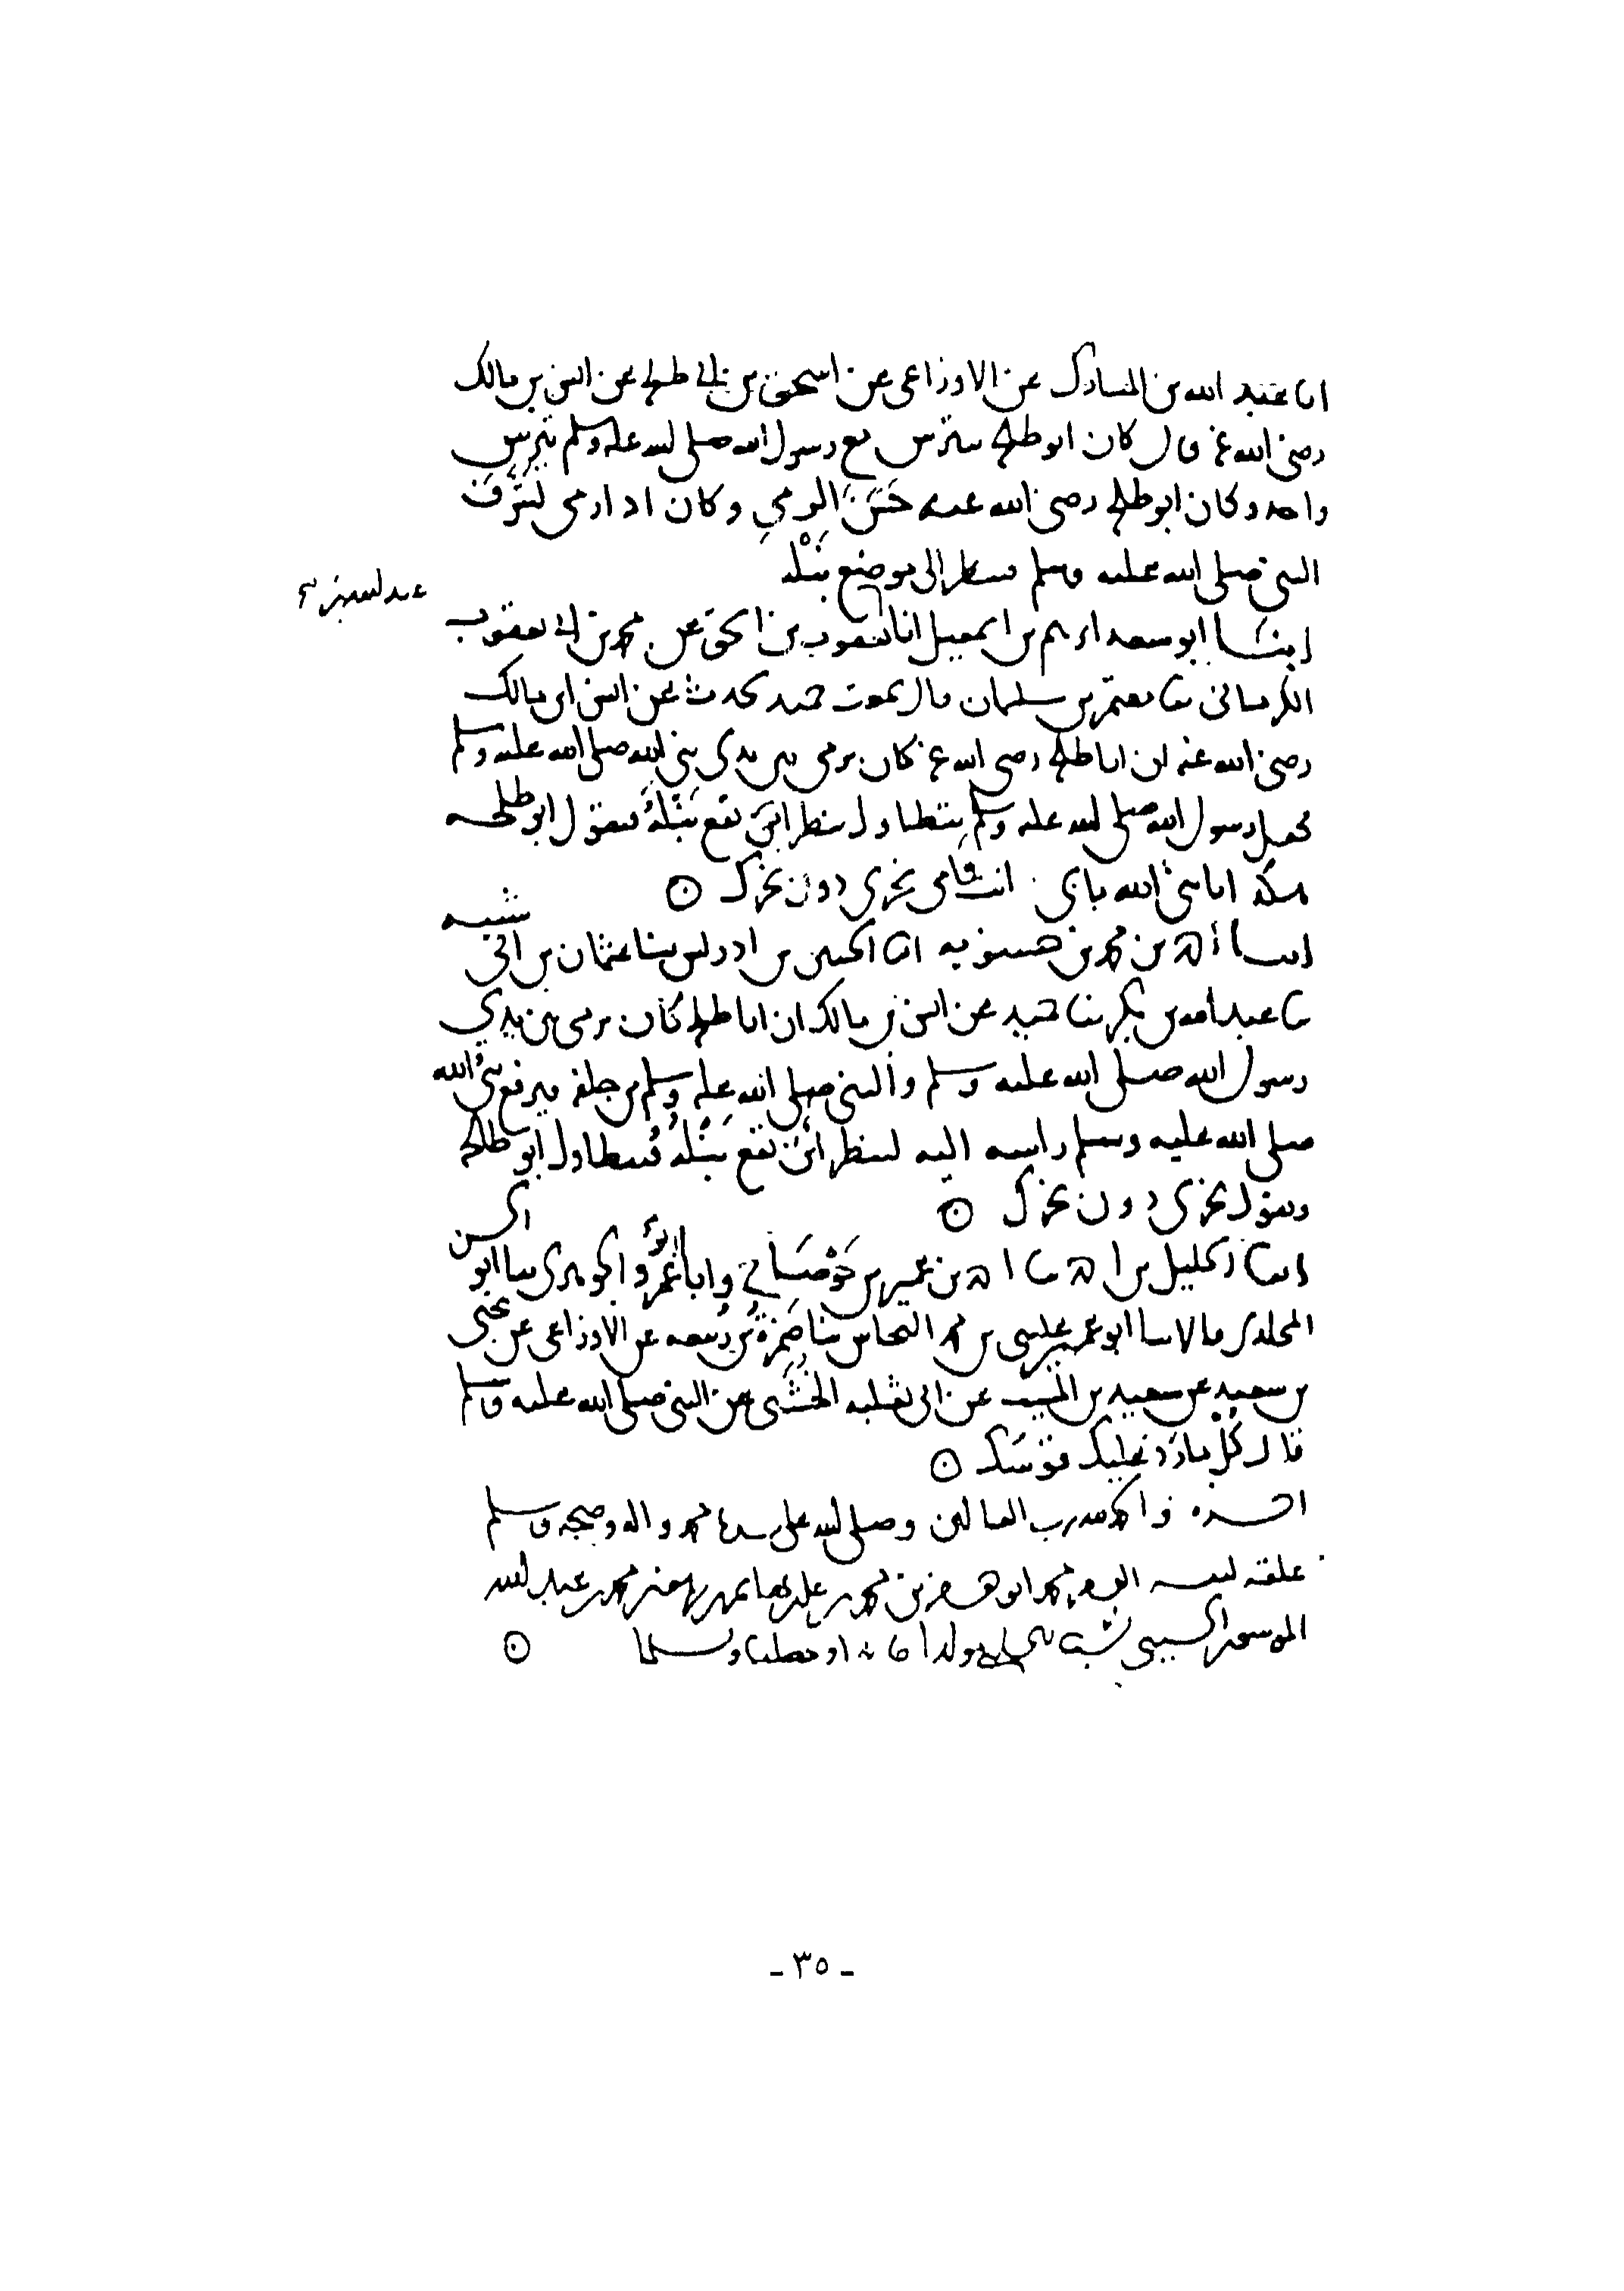 انا عبد الله بن المبارك عن الاوزاعي عن اسحق بن ابي طلحه عن انس بن مالك
رضي الله عنه قال كان ابو طلحه يتترس مع رسول الله صلى الله عليه وسلم بترس
واحد وكان ابو طلحه رضي الله عنه حَسَنَ الرميِ وكان اذا رمى لتشرف
النبي صلى الله عليه وسلم فينظر الى موضع نَبْله
انبنا ابو سعد اسمعيل انا يعقوب بن اسحق عن محمد بن ابي يعقوب
الكرماني ثنا معتمر بن سليمان قال سمعت حميد يحدث عن انس بن مالك
رضي الله عنه ان ابا طلحه رضي الله عنه كان يرمي بين يدي نبي الله صلى الله عليه وسلم
فجعل رسول الله صلى الله عليه وسلم يتطاول ينظر اين تقع نَبْلُهُ فيقول ابو طلحه
هكذا يا نبي الله بابي انت وامي نحري دون نحرك
انبنا احمد بن محمد بن حسنويه انا الحسين بن ادريس ثنا عثمان بن ابي شيبه
ثنا عبد الله بن بكر ثنا حميد عن انس بن مالك ان ابا طلحه كان يرمي بين يدي
رسول الله صلى الله عليه وسلم والنبي صلى الله عليه وسلم من خلفه فيرفع نبي الله
صلى الله عليه وسلم راسه اليه لينظر اين تقع نَبْلُهُ فيتطاول ابو طلحه
ويقول نحري دون نحرك
انبنا الخليل بن احمد ثنا احمد بن عمير بن جَوْصَا وانبا ابو عمرو الجوهري ثنا ابو الحسن
المخلدي قالا ثنا ابو عمير عيسى بن محمد النحاس ثنا ضَمْرَة بن ربيعه عن الاوزاعي عن يحيى
بن سعيد عن سعيد بن المسيب عن ابي ثعلبه الخُشَني عن النبي صلى الله عليه وسلم
قال كُلْ ما رَدَّ عليك قوسَك
اخره والحمد لله رب العالمين وصلى الله على سيدنا محمد واله وصحبه وسلم
علقه لنفسه محمد بن محمد بن عبد الله
الحسيني
- ٣٥ -